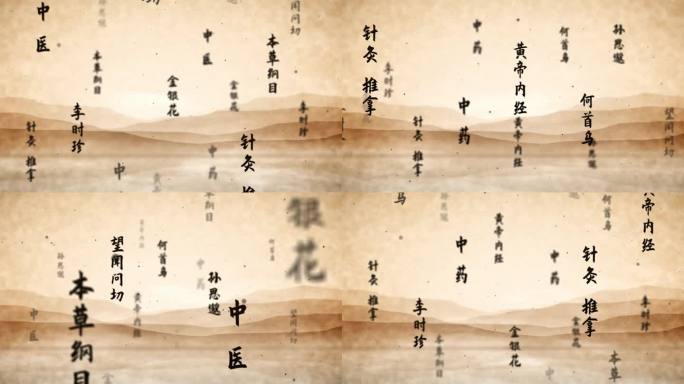 中医
本草纲目
李时珍
针灸 推拿
中
金银花
中医
本草纲目
金银花
针灸
本草纲目
李时珍
针灸 推拿
针灸 推拿
李时珍
针灸 推拿
中药
中药
黄帝内经
黄帝内经
何首乌
何首乌
孙思邈
望闻问切
孙思邈
中医
本草纲目
望闻问切
黄帝内经
何首乌
中药
孙思邈
中医
何首乌
银花
望闻问切
针灸 推拿
乌
李时珍
本草纲目
孙思邈
中药
黄帝内经
金银花
中药
针灸 推拿
金银花
本草
黄帝内经
李时珍